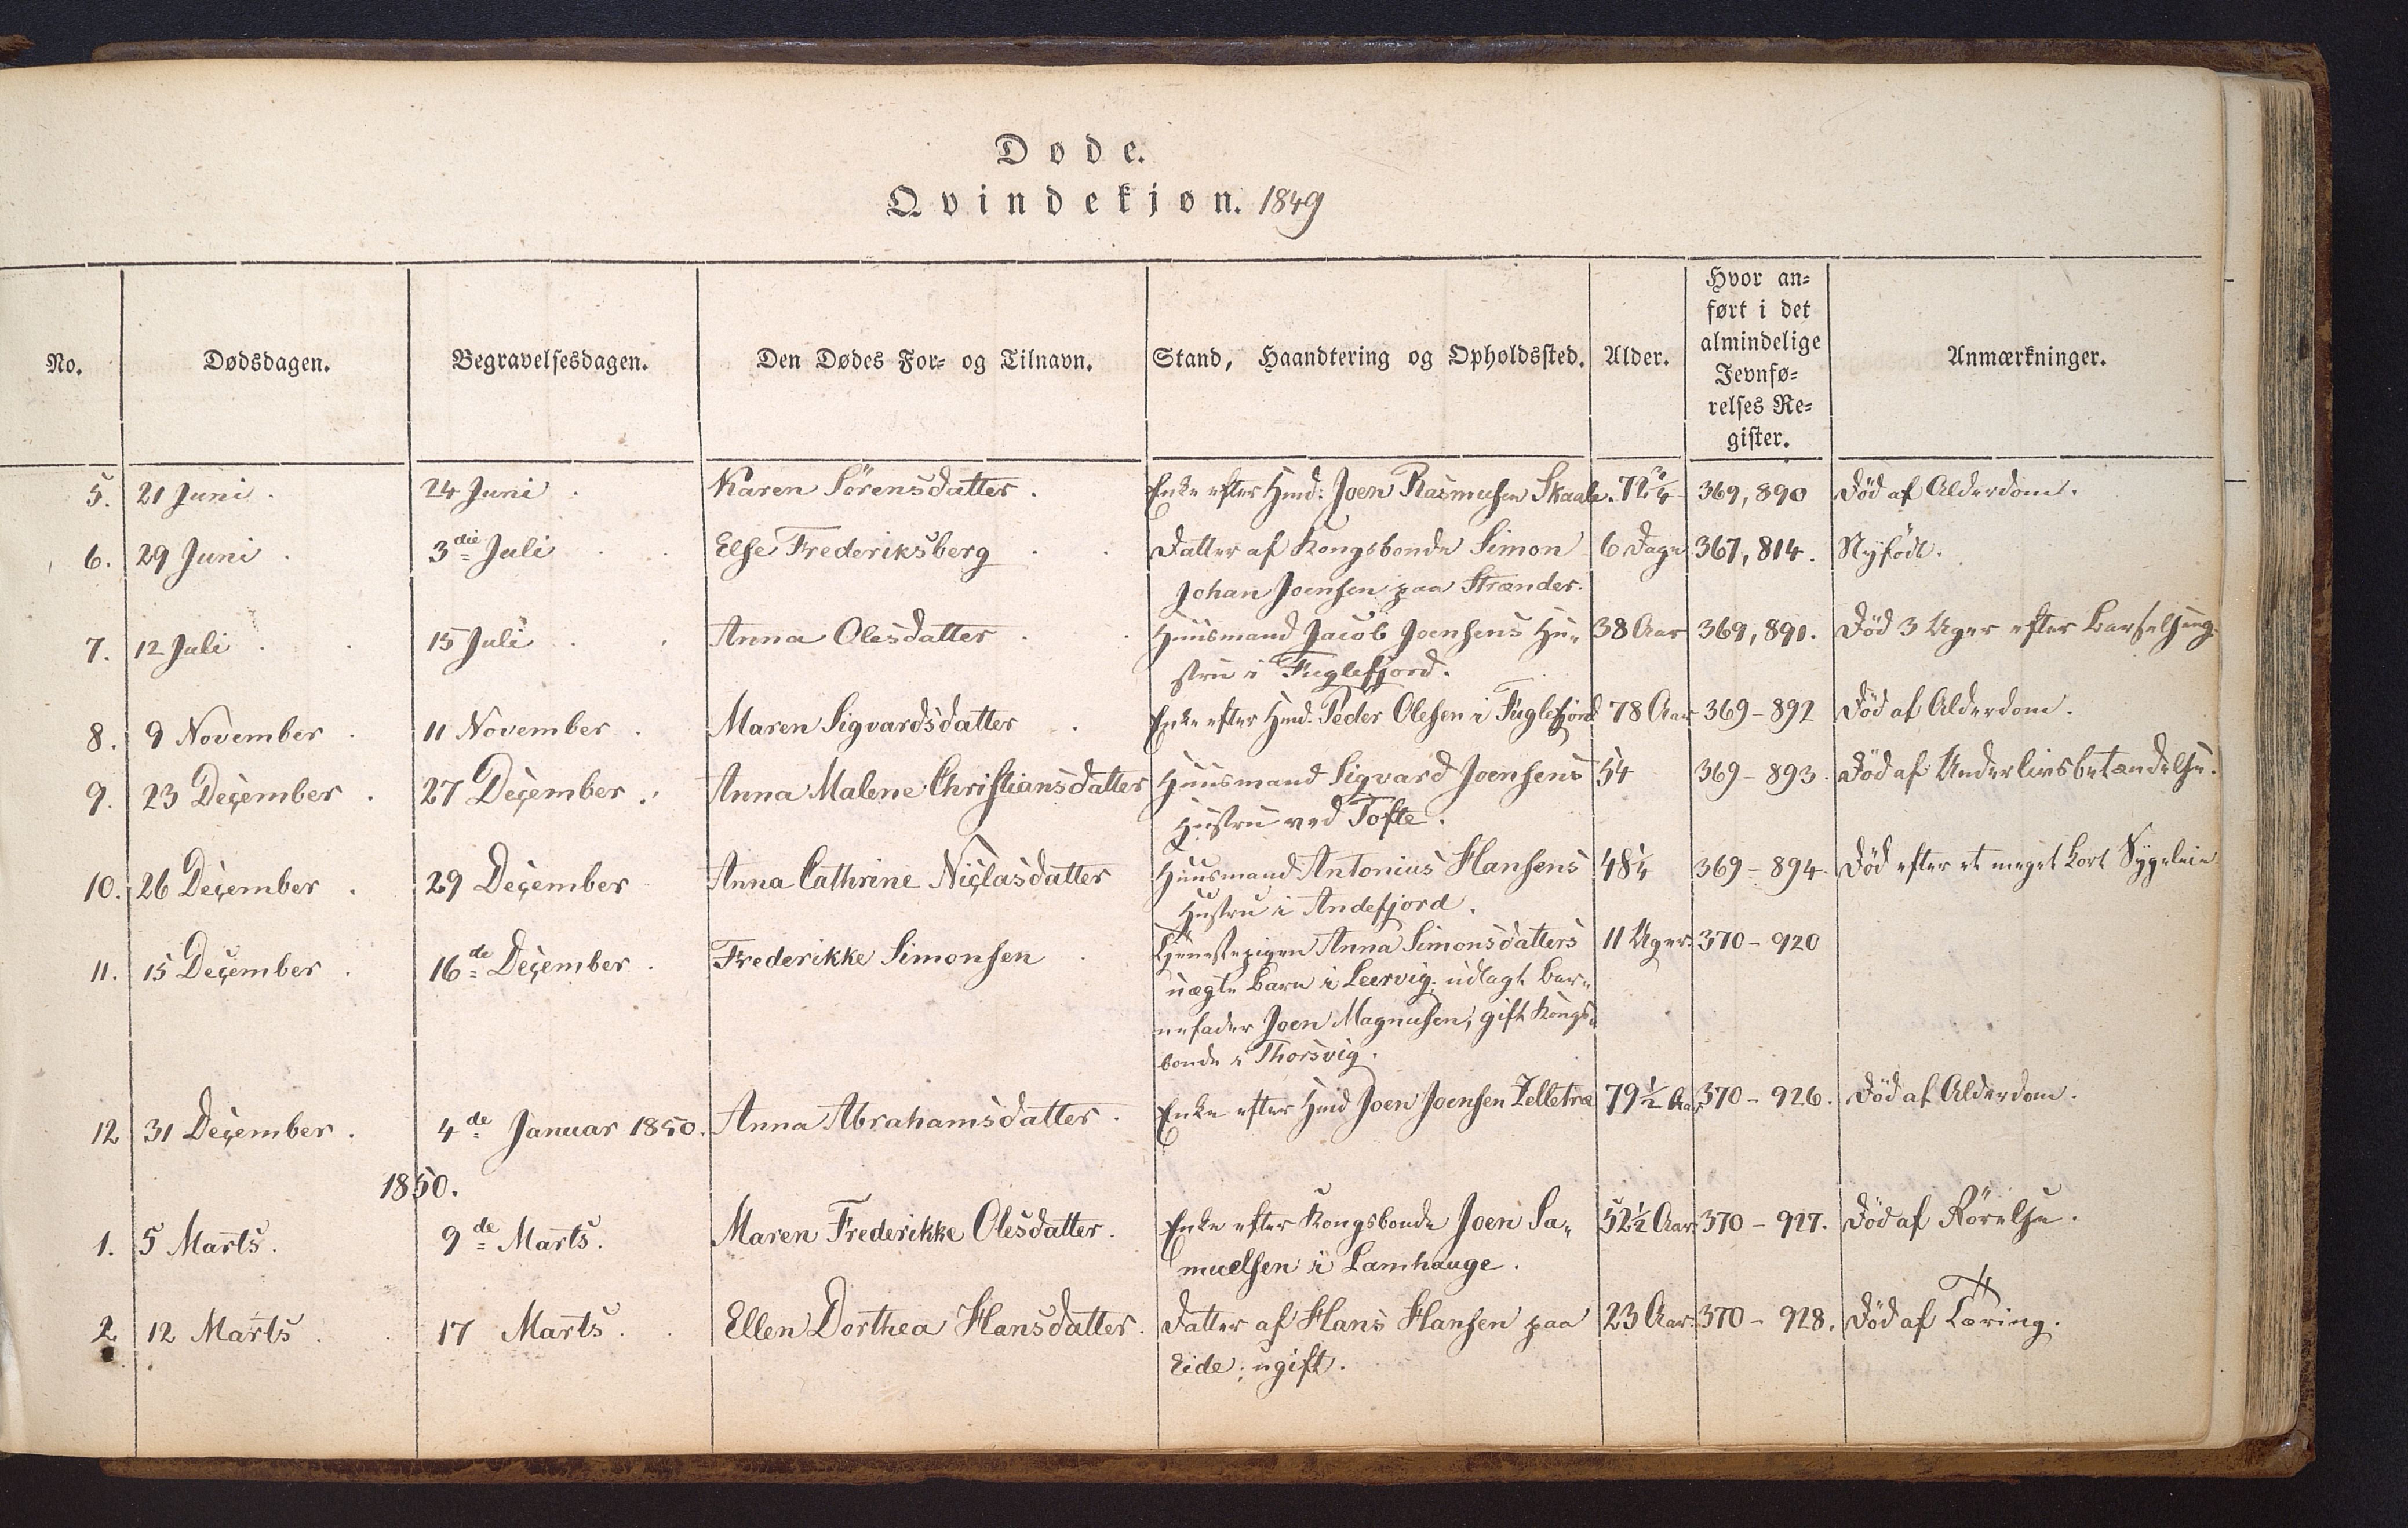 Døde.
Qvindekjøn. 1849
No. Dødsdagen. Begravelsesdagen. Den Dødes For- og Tilnavn. Stand, Haandtering og Opholdssted. Alder. Hvor an-
ført i det
almindelige
Jevnfø-
relses Re-
gister. Anmærkninger.
5. 21 Juni. 24 Juni. Karen Sörensdatter. Enke efter Hmd: Joen Rasmusen Skaale. 72 3/4 369, 890 Död af Alderdom.
6. 29 Juni. 3die Juli Else Frederiksberg Datter af Kongsbonde Simon 6 Dage 367, 814. Nyfödt.
Johan Joensen paa Strænder.
7. 12 Juli 15 Juli Anna Olesdatter Huusmand Jacob Joensens Hu- 38 Aar 369, 891. Död 3 Uger efter Barselseng.
stru i Fuglefjord.
8. 9 November. 11 November. Maren Sigvardsdatter Enke efter Hmd. Peder Olesen i Fuglefjord 78 Aar 369-892 Död af Alderdom.
9. 23 December. 27 December. Anna Malene Christiansdatter Huusmand Sigvard Joensens 54 369-893. Död af Underlivsbetændelse.
Hustru ved Tofte.
10. 26 December. 29 December Anna Cathrine Niclasdatter Huusmand Antonius Hansens 48 1/4 369-894. Död efter et meget kort Sygeleie
Hustru i Andefjord.
11. 15 December. 16de December. Frederikke Simonsen Tjenestepigen Anna Simonsdatters 11 Uger 370-920
uægte Barn i Leervig; udlagt Bar-
nefader Joen Magnusen, gift Kongs-
bonde i Thorsvig.
12 31 December. 4de Januar 1850. Anna Abrahamsdatter. Enke efter Hmd Joen Joensen Zelletræ 79 1/2 Aar 370-926. Död af Alderdom.
1850.
1. 5 Marts. 9de Marts. Maren Frederikke Olesdatter. Enke efter Kongsbonde Joen Sa- 52 1/2 Aar 370-927. Död af Rörelse.
muelsen i Lamhauge.
2. 12 Marts. 17 Marts. Ellen Dorthea Hansdatter. Datter af Hans Hansen paa 23 Aar. 370-928. Död af Tæring.
Eide; ugift.